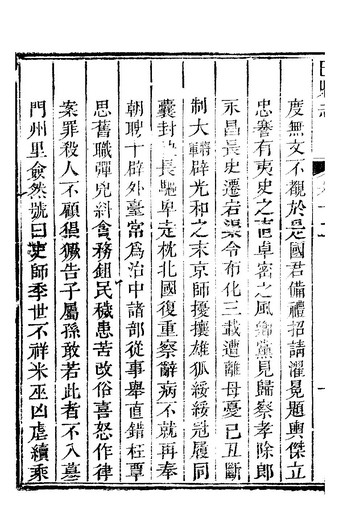 度無文不觀於是國君備禮招請濯冕題輿傑立
忠謇有夷史之直卓密之風鄉黨見歸察孝除郎
永昌長史遷宕渠令布化三載遭離母憂己丑斷
制大將軍辟光和之末京師擾攘雄狐綏綏冠履同
囊封長驅卑走枕北國復重察辭病不就再奉
朝聘十辟外臺常為治中諸部從事舉直錯枉覃
思舊職彈兇糾貪務鈕民穢患苦改俗喜怒作律
案罪殺人不顧猖獗告子屬孫敢若此者不入墓
門州里僉然號曰吏師季世不祥米巫凶虐續乘